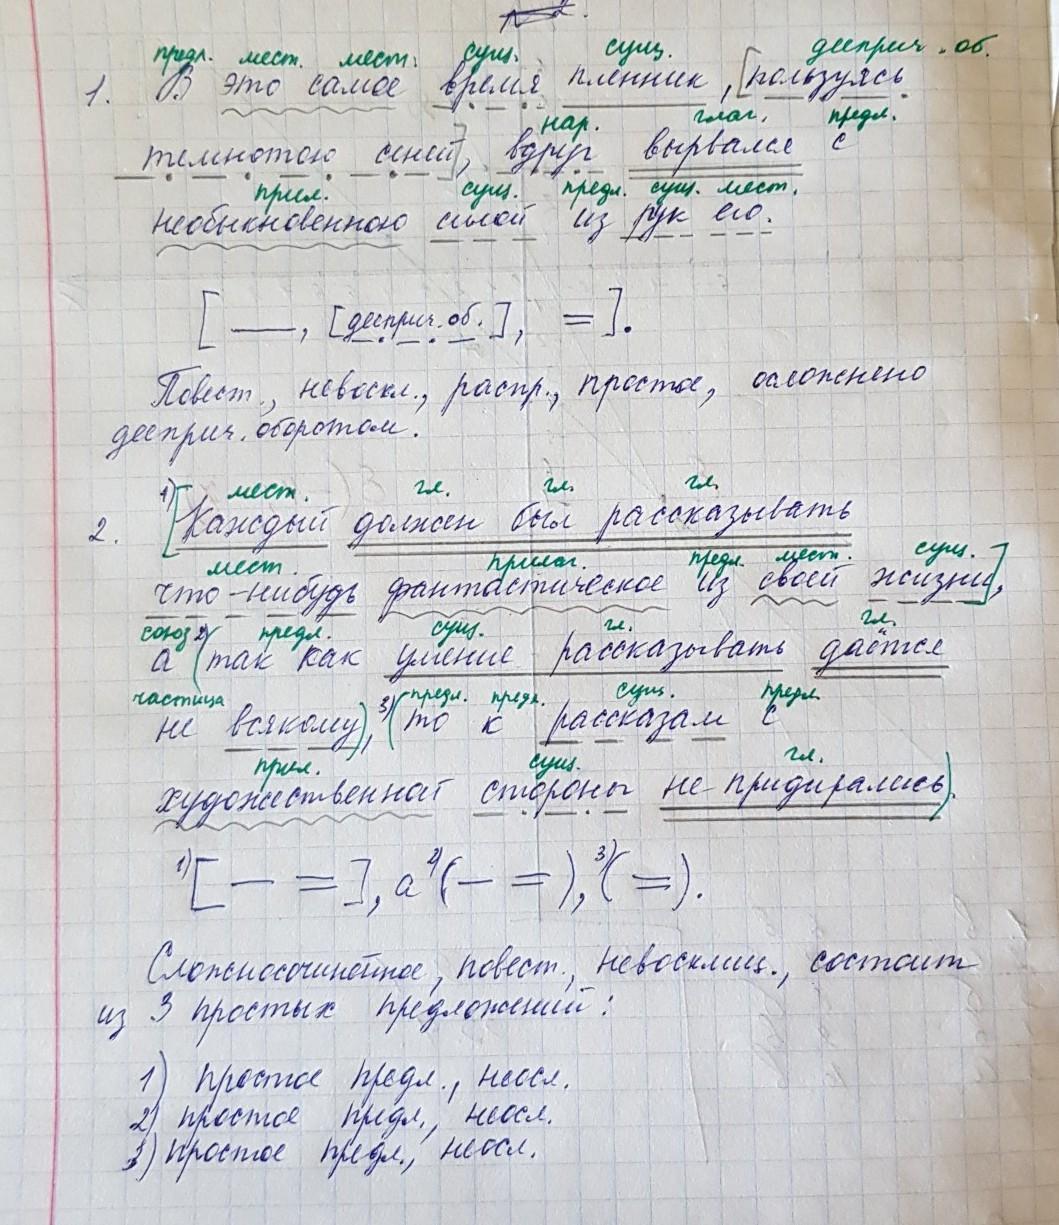 предл. мест. мест. сущ. сущ. дееприч. об.
1. В это самое время пленник, [пользуясь
нар. глаг. предл.
темнотою сеней], вдруг вырвался с
прил. сущ. предл. сущ. мест.
необыкновенною силой из рук его.
[ — , [дееприч. об.], = ].
Повест., невоскл., распр., простое, осложнено
дееприч. оборотом.
мест. гл. гл. гл.
2. 1) [Каждый должен был рассказывать
мест. прилаг. предл. мест. сущ.
что-нибудь фантастическое из своей жизни],
союз предл. сущ. гл. гл.
а 2) (так как умение рассказывать даётся
частица предл. предл. сущ. предл.
не всякому), 3) (то к рассказам с
прил. сущ. гл.
художественной стороны не придирались).
1) [ — = ], а 2) ( — = ), 3) ( = ).
Сложносочинённое, повест., невосклиц., состоит
из 3 простых предложений:
1) простое предл., неосл.
2) простое предл., неосл.
3) простое предл., неосл.